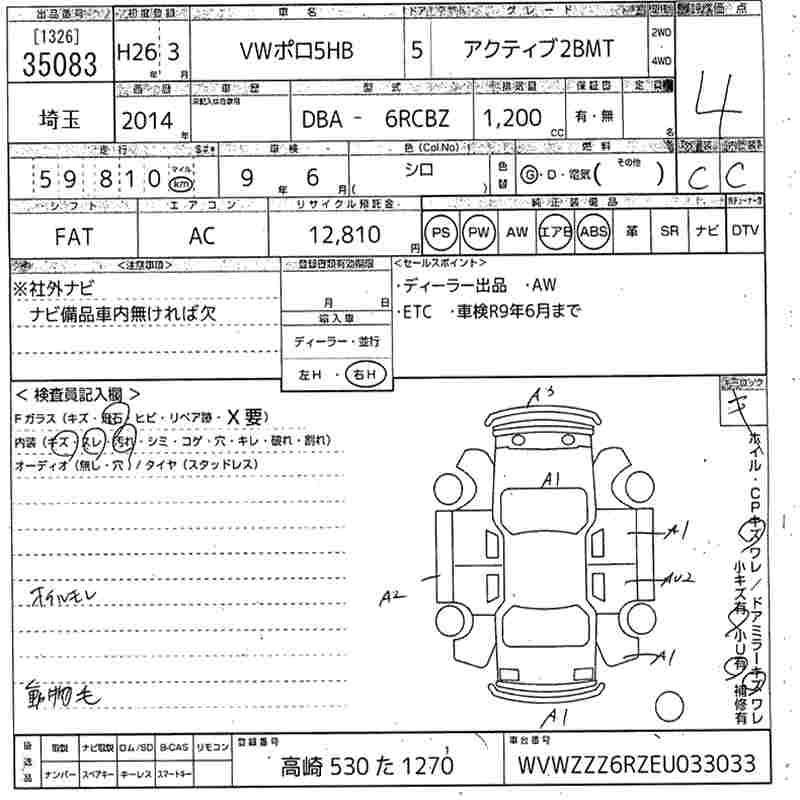 出品番号 初度登録 車名 ドア グレード 評価点
[1326]
35083 H26年 3月 VWポロ5HB 5 アクティブ2BMT 2WD・4WD 4
車歴 型式 排気量 保証書 定員
埼玉 2014年 DBA - 6RCBZ 1,200 CC 有・無 名
走行 車検 色(Col.No) 色替 燃料 外装 内装
59810 マイル km 9年 6月 シロ ( ) G・D・電気( その他 ) C C
シフト エアコン リサイクル預託金 純正装備品
FAT AC 12,810円 PS PW AW エアB ABS 革 SR ナビ DTV
<注意事項> 登録書類有効期限 <セールスポイント>
※社外ナビ 月 日 ・ディーラー出品 ・AW
ナビ備品車内無ければ欠 輸入車 ・ETC ・車検R9年6月まで
ディーラー・並行
左H・右H
<検査員記入欄>
Fガラス(キズ・飛石・ヒビ・リペア跡・X要)
内装(キズ・スレ・汚れ・シミ・コゲ・穴・キレ・破れ・割れ)
オーディオ(無し・穴)/タイヤ(スタッドレス)
オイルモレ
動物毛
A3
A1
A1
A2
AU2
A1
A1
キーロック
キ
ホイル・CPキズワレ/ドアミラーキズワレ
小キズ有/小U有/補修有
後送品 取説 ナビ取説 ロム/SD B-CAS リモコン 登録番号 車台番号
ナンバー スペアキー キーレス スマートキー 高崎 530 た 1270 WVWZZZ6RZEU033033